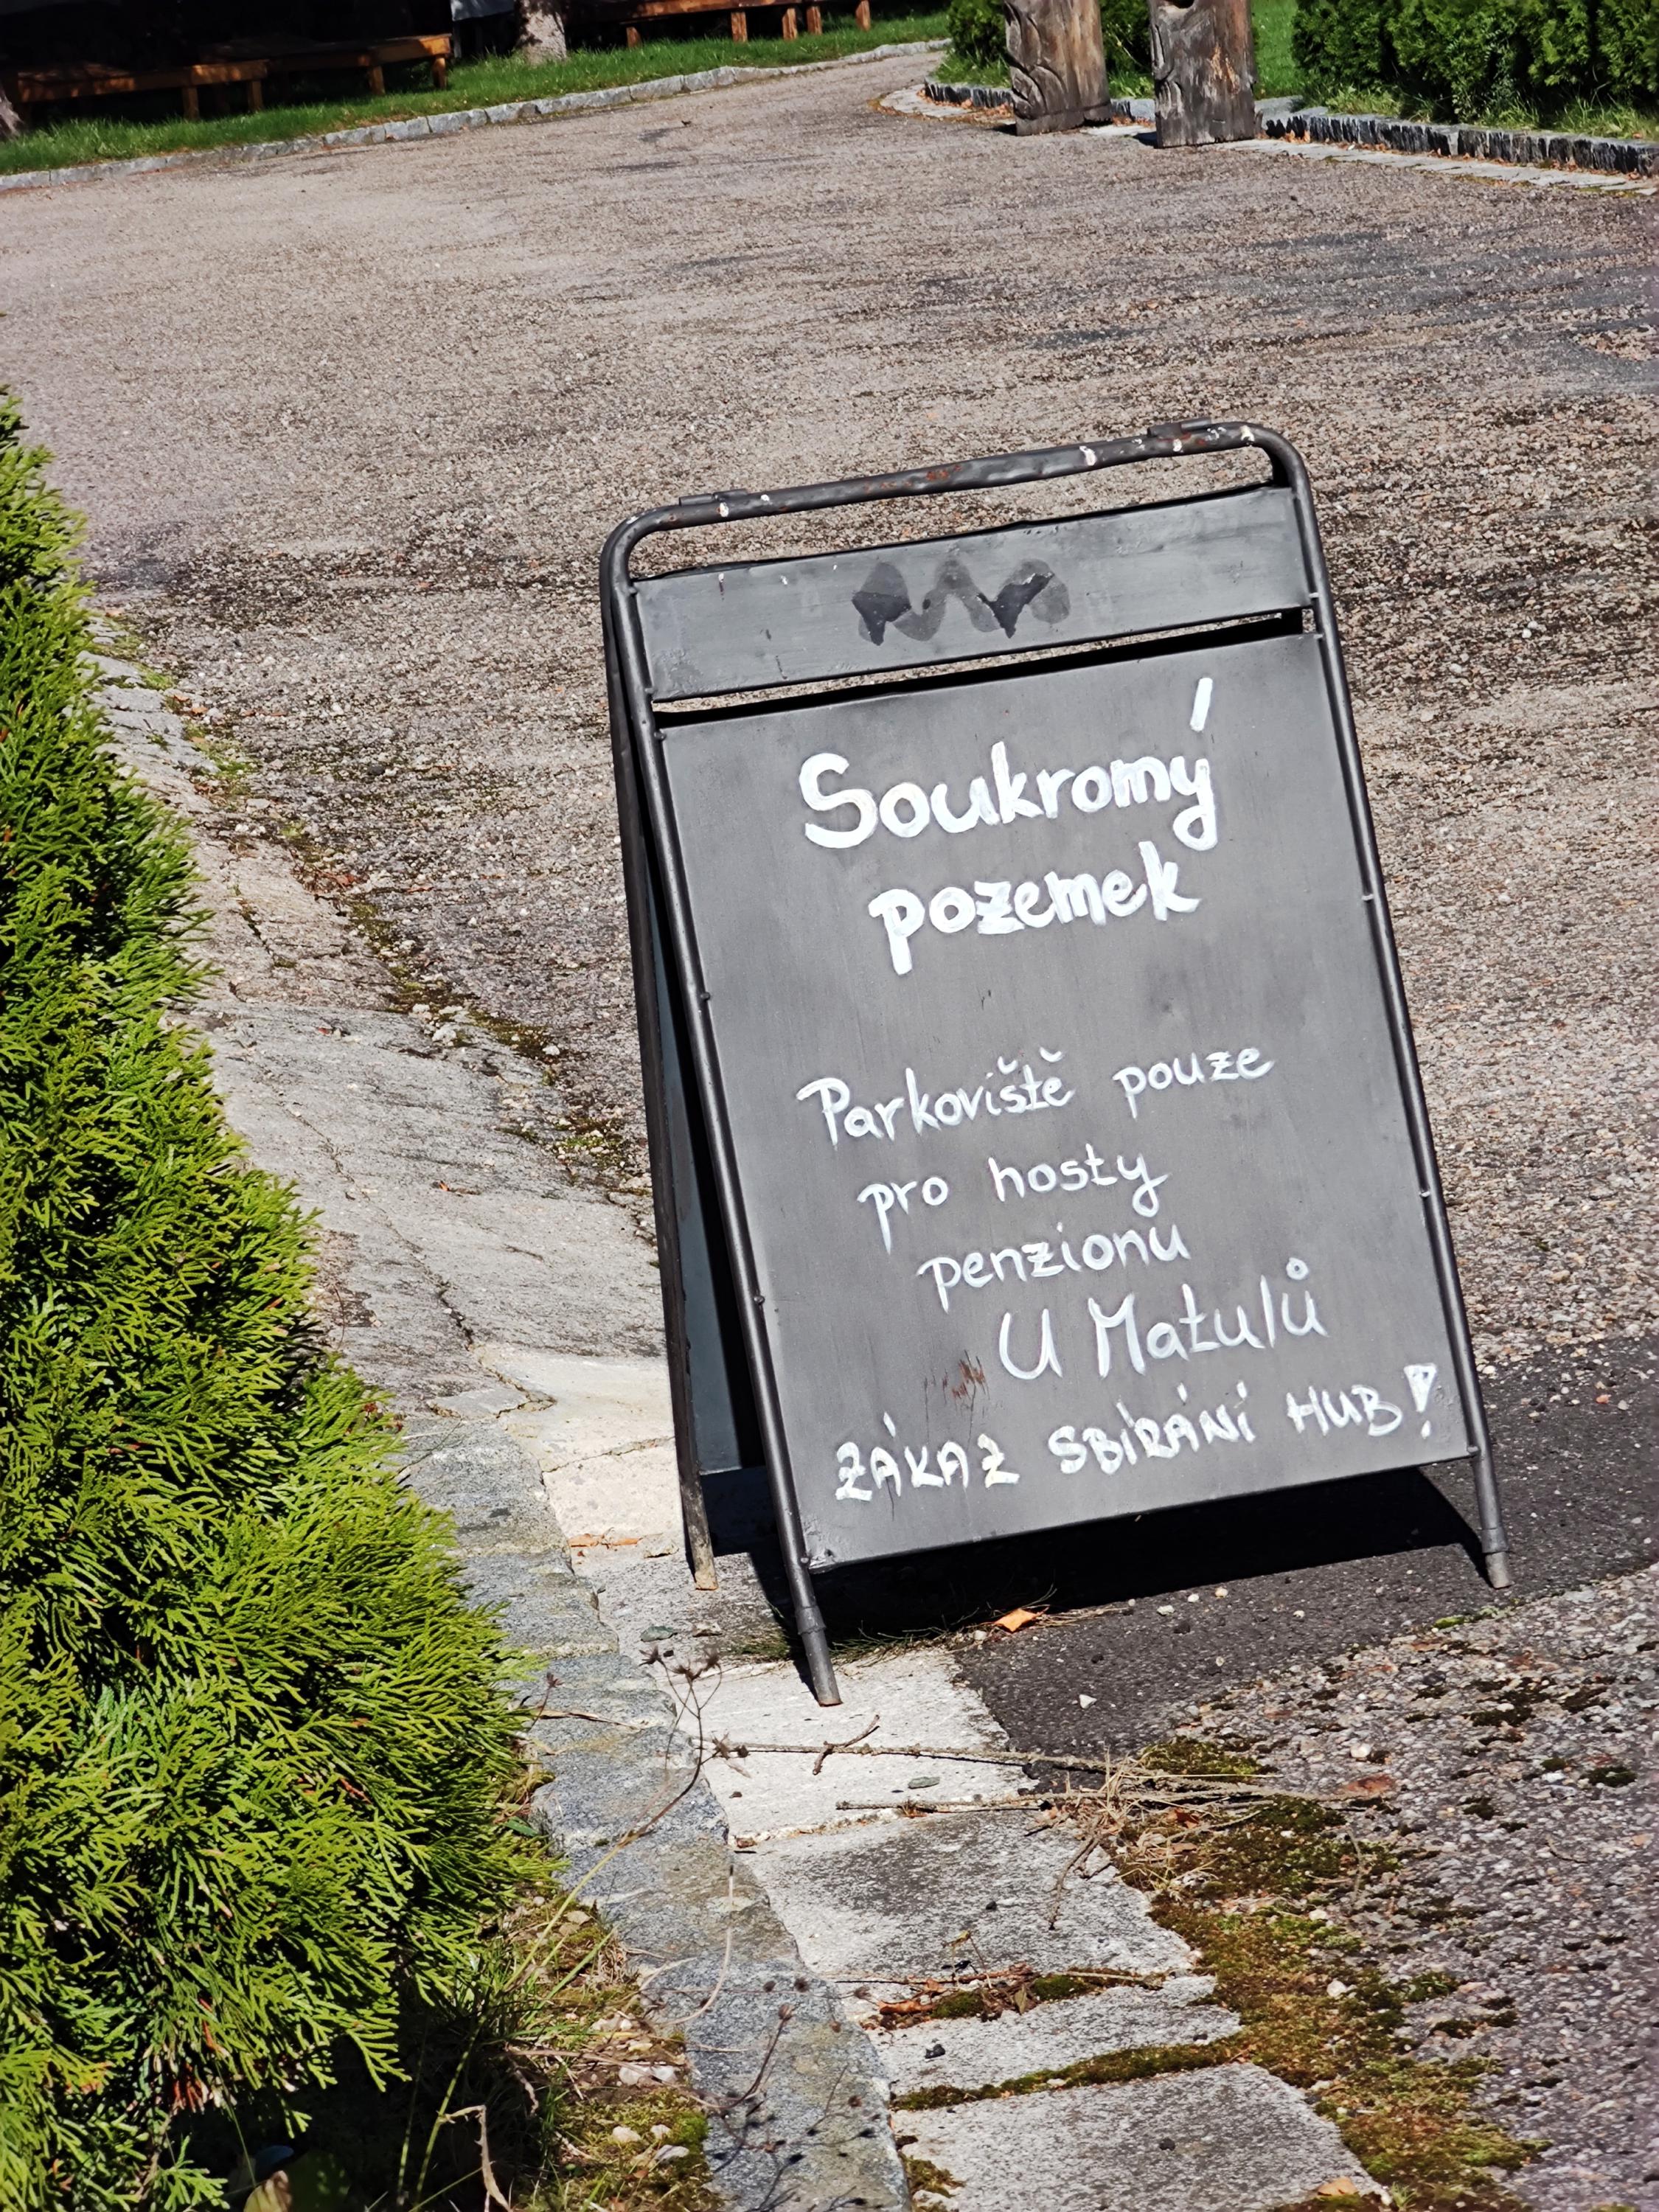 Soukromý
pozemek
Parkoviště pouze
pro hosty
penzionu
U Matulů
ZÁKAZ SBÍRÁNÍ HUB!